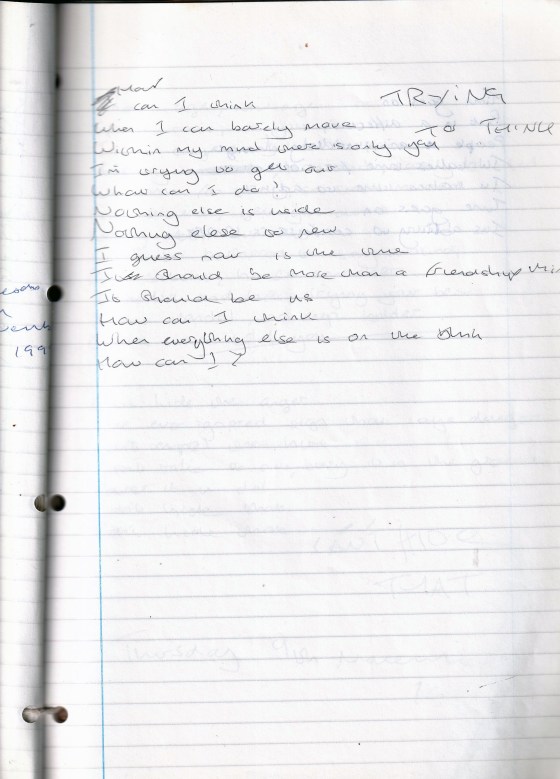 TRYING
TO THINK
How
can I think
When I can barely move
Within my mind there's only you
I'm trying to get out
What can I do?
Nothing else is inside
Nothing elese to new
I guess now is the time
It should be more than a friendship
It should be us
How can I think
When everything else is on the blink
How can I?
199